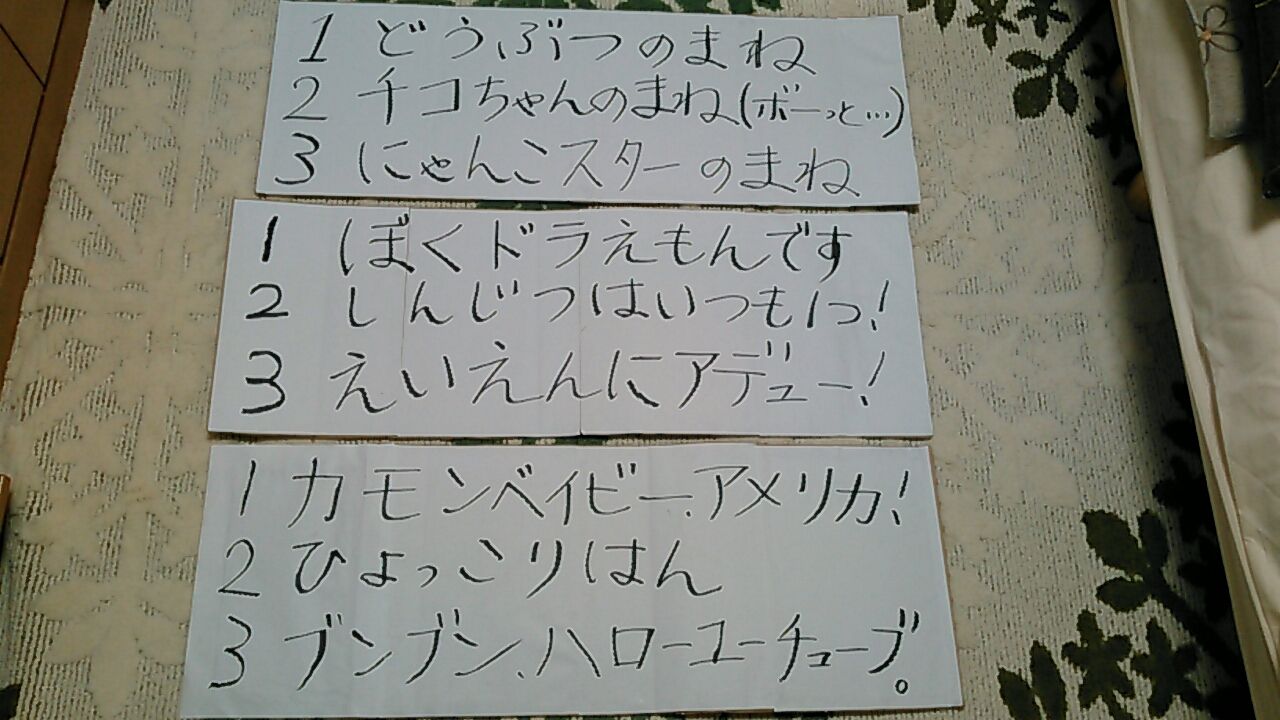 1 どうぶつのまね
2 チコちゃんのまね(ボーっと…)
3 にゃんこスターのまね
1 ぼくドラえもんです
2 しんじつはいつも1つ!
3 えいえんにアデュー!
1 カモンベイビー、アメリカ!
2 ひょっこりはん
3 ブンブン、ハローユーチューブ。